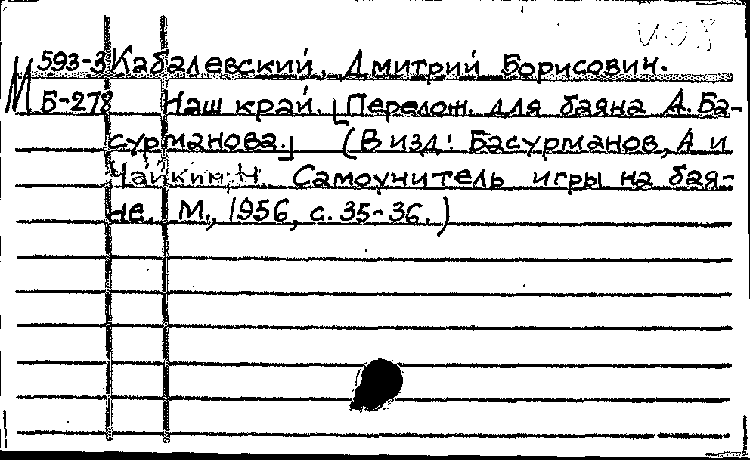 М 593-3 Кабалевский, Дмитрий Борисович.
Б-278 Наш край. [Перелож. для баяна А. Ба-
сурманова.] (В изд: Басурманов, А и
Чайкин, Н. Самоучитель игры на бая-
не. М., 1956, с. 35-36.)